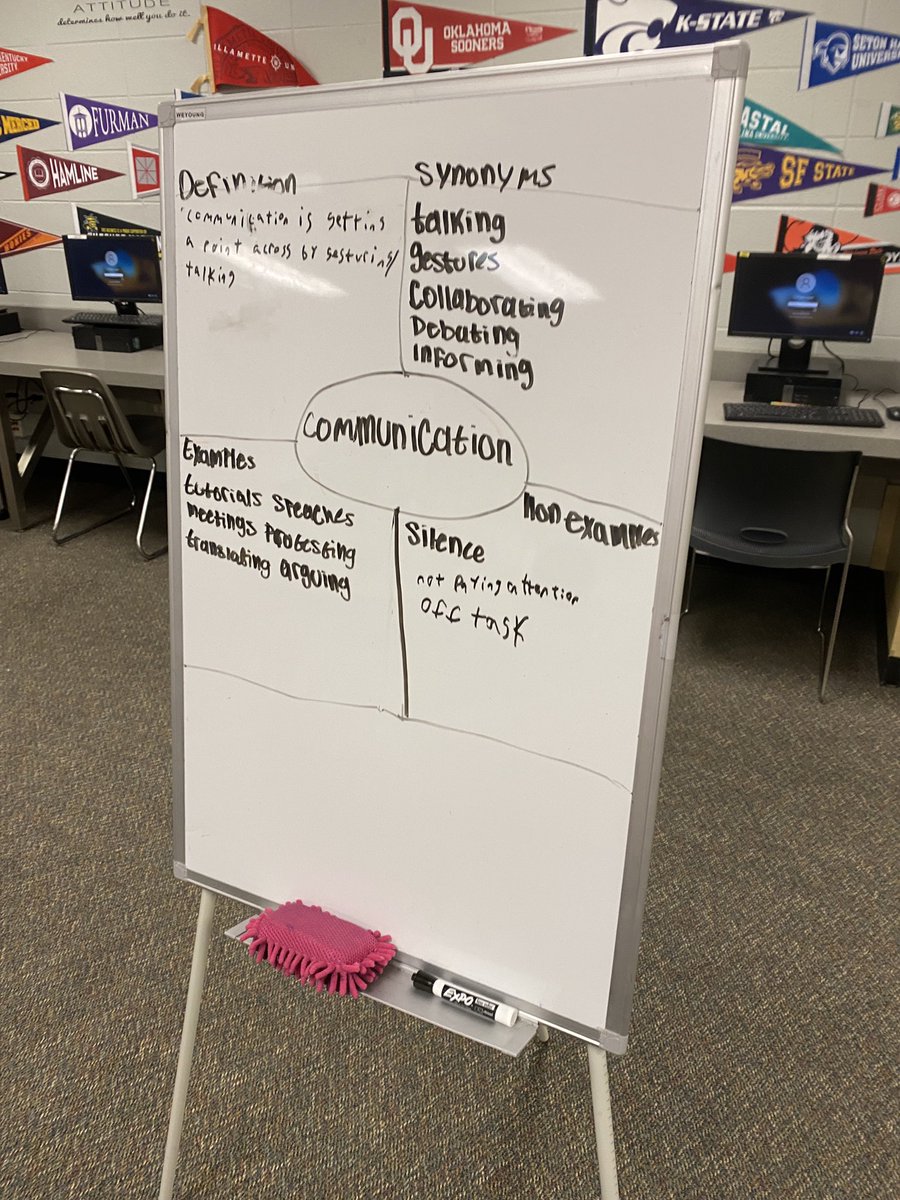 ATTITUDE
determines how well you do it.
OKLAHOMA
SOONERS
K-STATE
SETON HA
UNIVERS
KENTUCKY
ERSITY
ILLAMETTE UN
FURMAN
MERCER
HAMLINE
ASTAL
LINA UNIVERSITY
SF STATE
WEYOUNG
Definition
communication is getting
a point across by gesturing/
talking
Synonyms
talking
gestures
Collaborating
Debating
informing
Communication
Examples
tutorials Speaches
meetings Protesting
translating arguing
Non examples
Silence
not paying attention
off task
EXPO